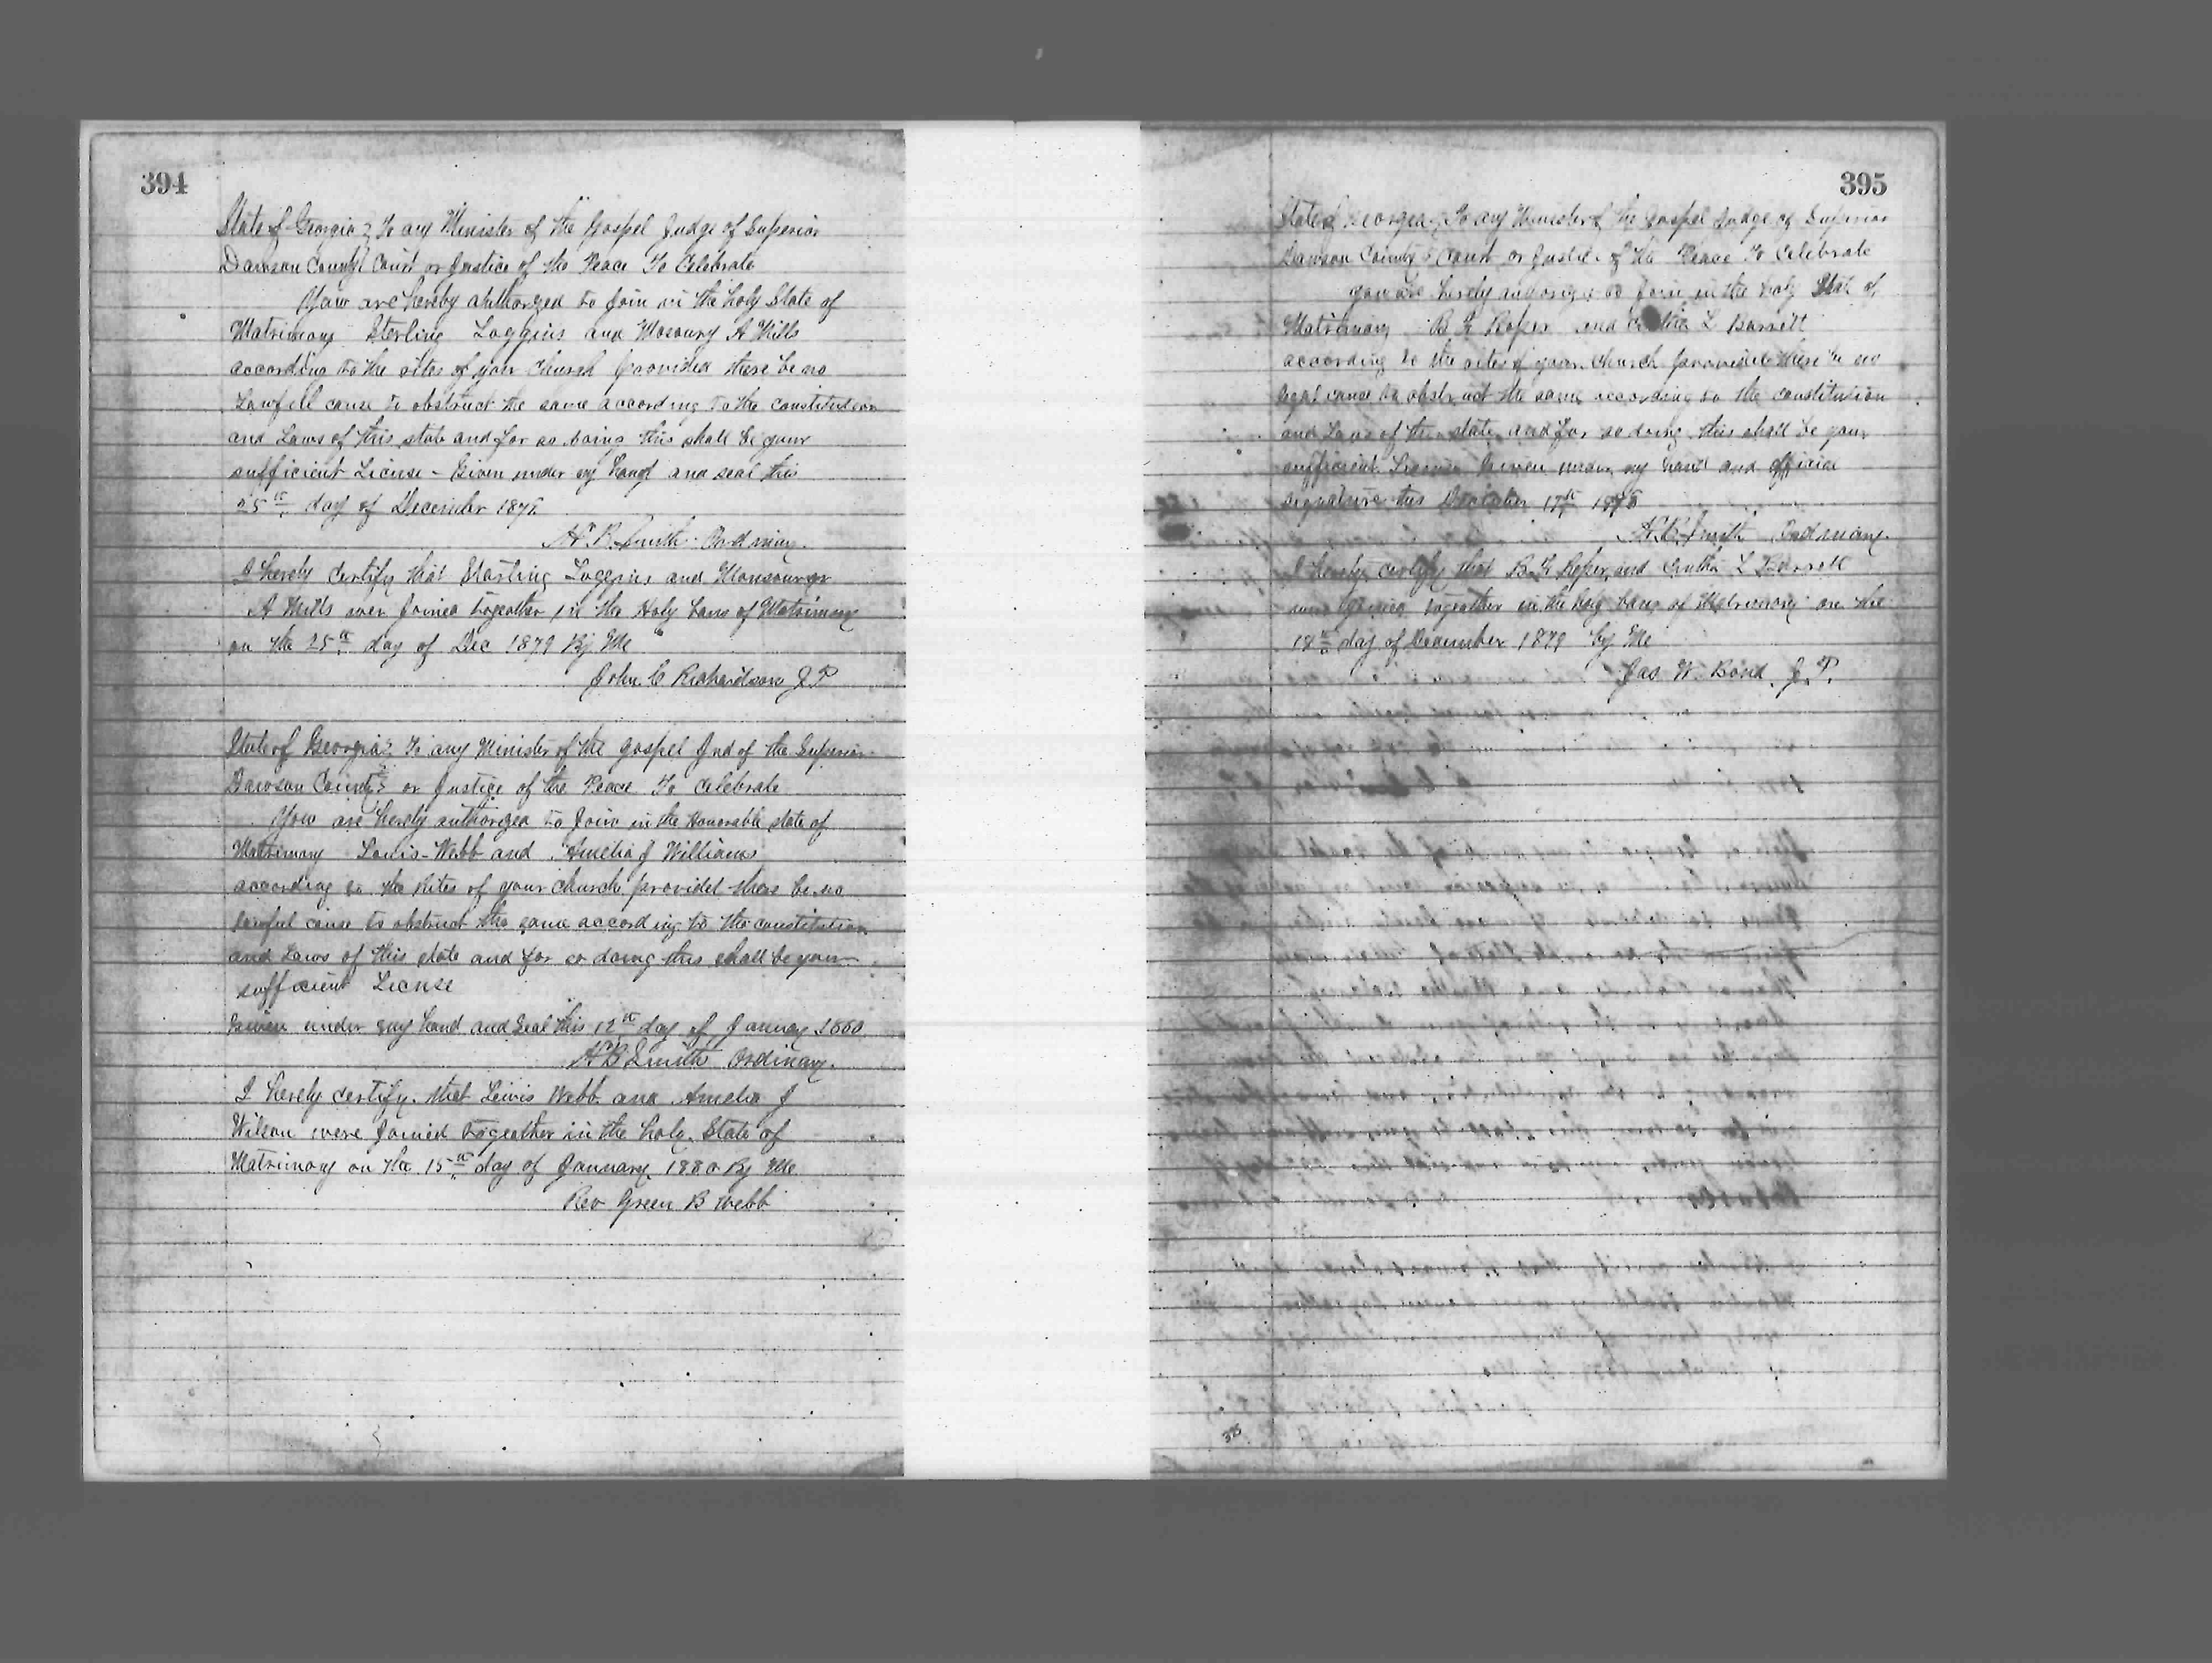 394
State of Georgia } To any Minister of the Gospel Judge of Superior
Dawson County } Court or Justice of the Peace To Celebrate
You are hereby authorized to Join in the holy State of
Matrimony Sterling Loggins and Mosoury A Mills
according to the rites of your Church provided there be no
Lawfull cause to obstruct the same according to the constitution
and Laws of this state and for so doing this shall be your
sufficient License - Given under my hand and seal this
25th day of December 187
H. B. Smith Ordinary.
I hereby certify that Starling Loggins and
A Mills wer Joined together in the Holy bans of Matrimony
on the 25th day of Dec 1879 By Me
John C Richardson J P
State of Georgia } To any Minister of the Gospel Jnd of the Superior
Dawson County } or Justice of the Peace To Celebrate
You are hereby authorized to Join in the Honorable state of
Matrimony Louis Webb and Amelia J Williams
according to the Rites of your church provided there be no
lawful cause to obstruct the same according to the constitution
and Laws of this state and for so doing this shall be your
sufficient License
Given under my hand and Seal this 12th day of January 1880
H B Smith Ordinary.
I hereby certify that Lewis Webb and Amelia J
Wilson were Joined togeather in the holy State of
Matrimony on the 15th day of January 1880 By Me
Rev Green B Webb
395
State of Georgia } To any Minister of the Gospel Judge of Superior
Dawson County } Court or Justice of the Peace To Celebrate
you are hereby authorized to Join in the holy State of
Matrimony B Roper and L Barrett
according to the rites of your Church provided there be no
legal cause to obstruct the same according to the constitution
and Laws of this state and for so doing this shall be your
sufficient License Given under my hand and official
signature this December 17th 187
H. B. Smith Ordinary.
I hereby certify that B Roper and L Barrett
were joined togeather in the holy bans of Matrimony on the
18th day of December 1879 by Me
Jas W. Bond J. P.